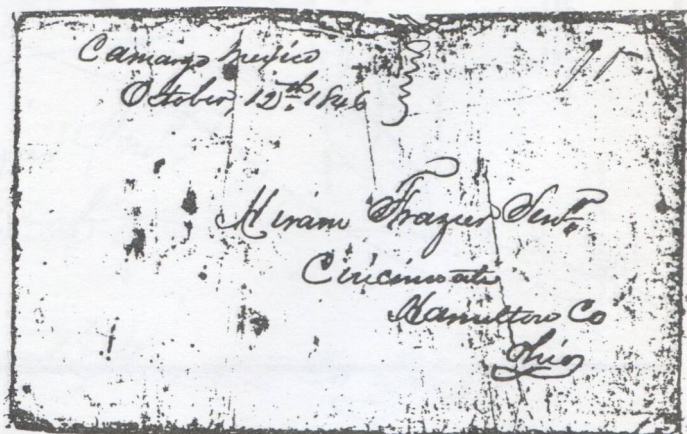 Camargo Mexico
October 12th 1846
Hiram Frazier Senr
Cincinnati
Hamilton Co
Ohio